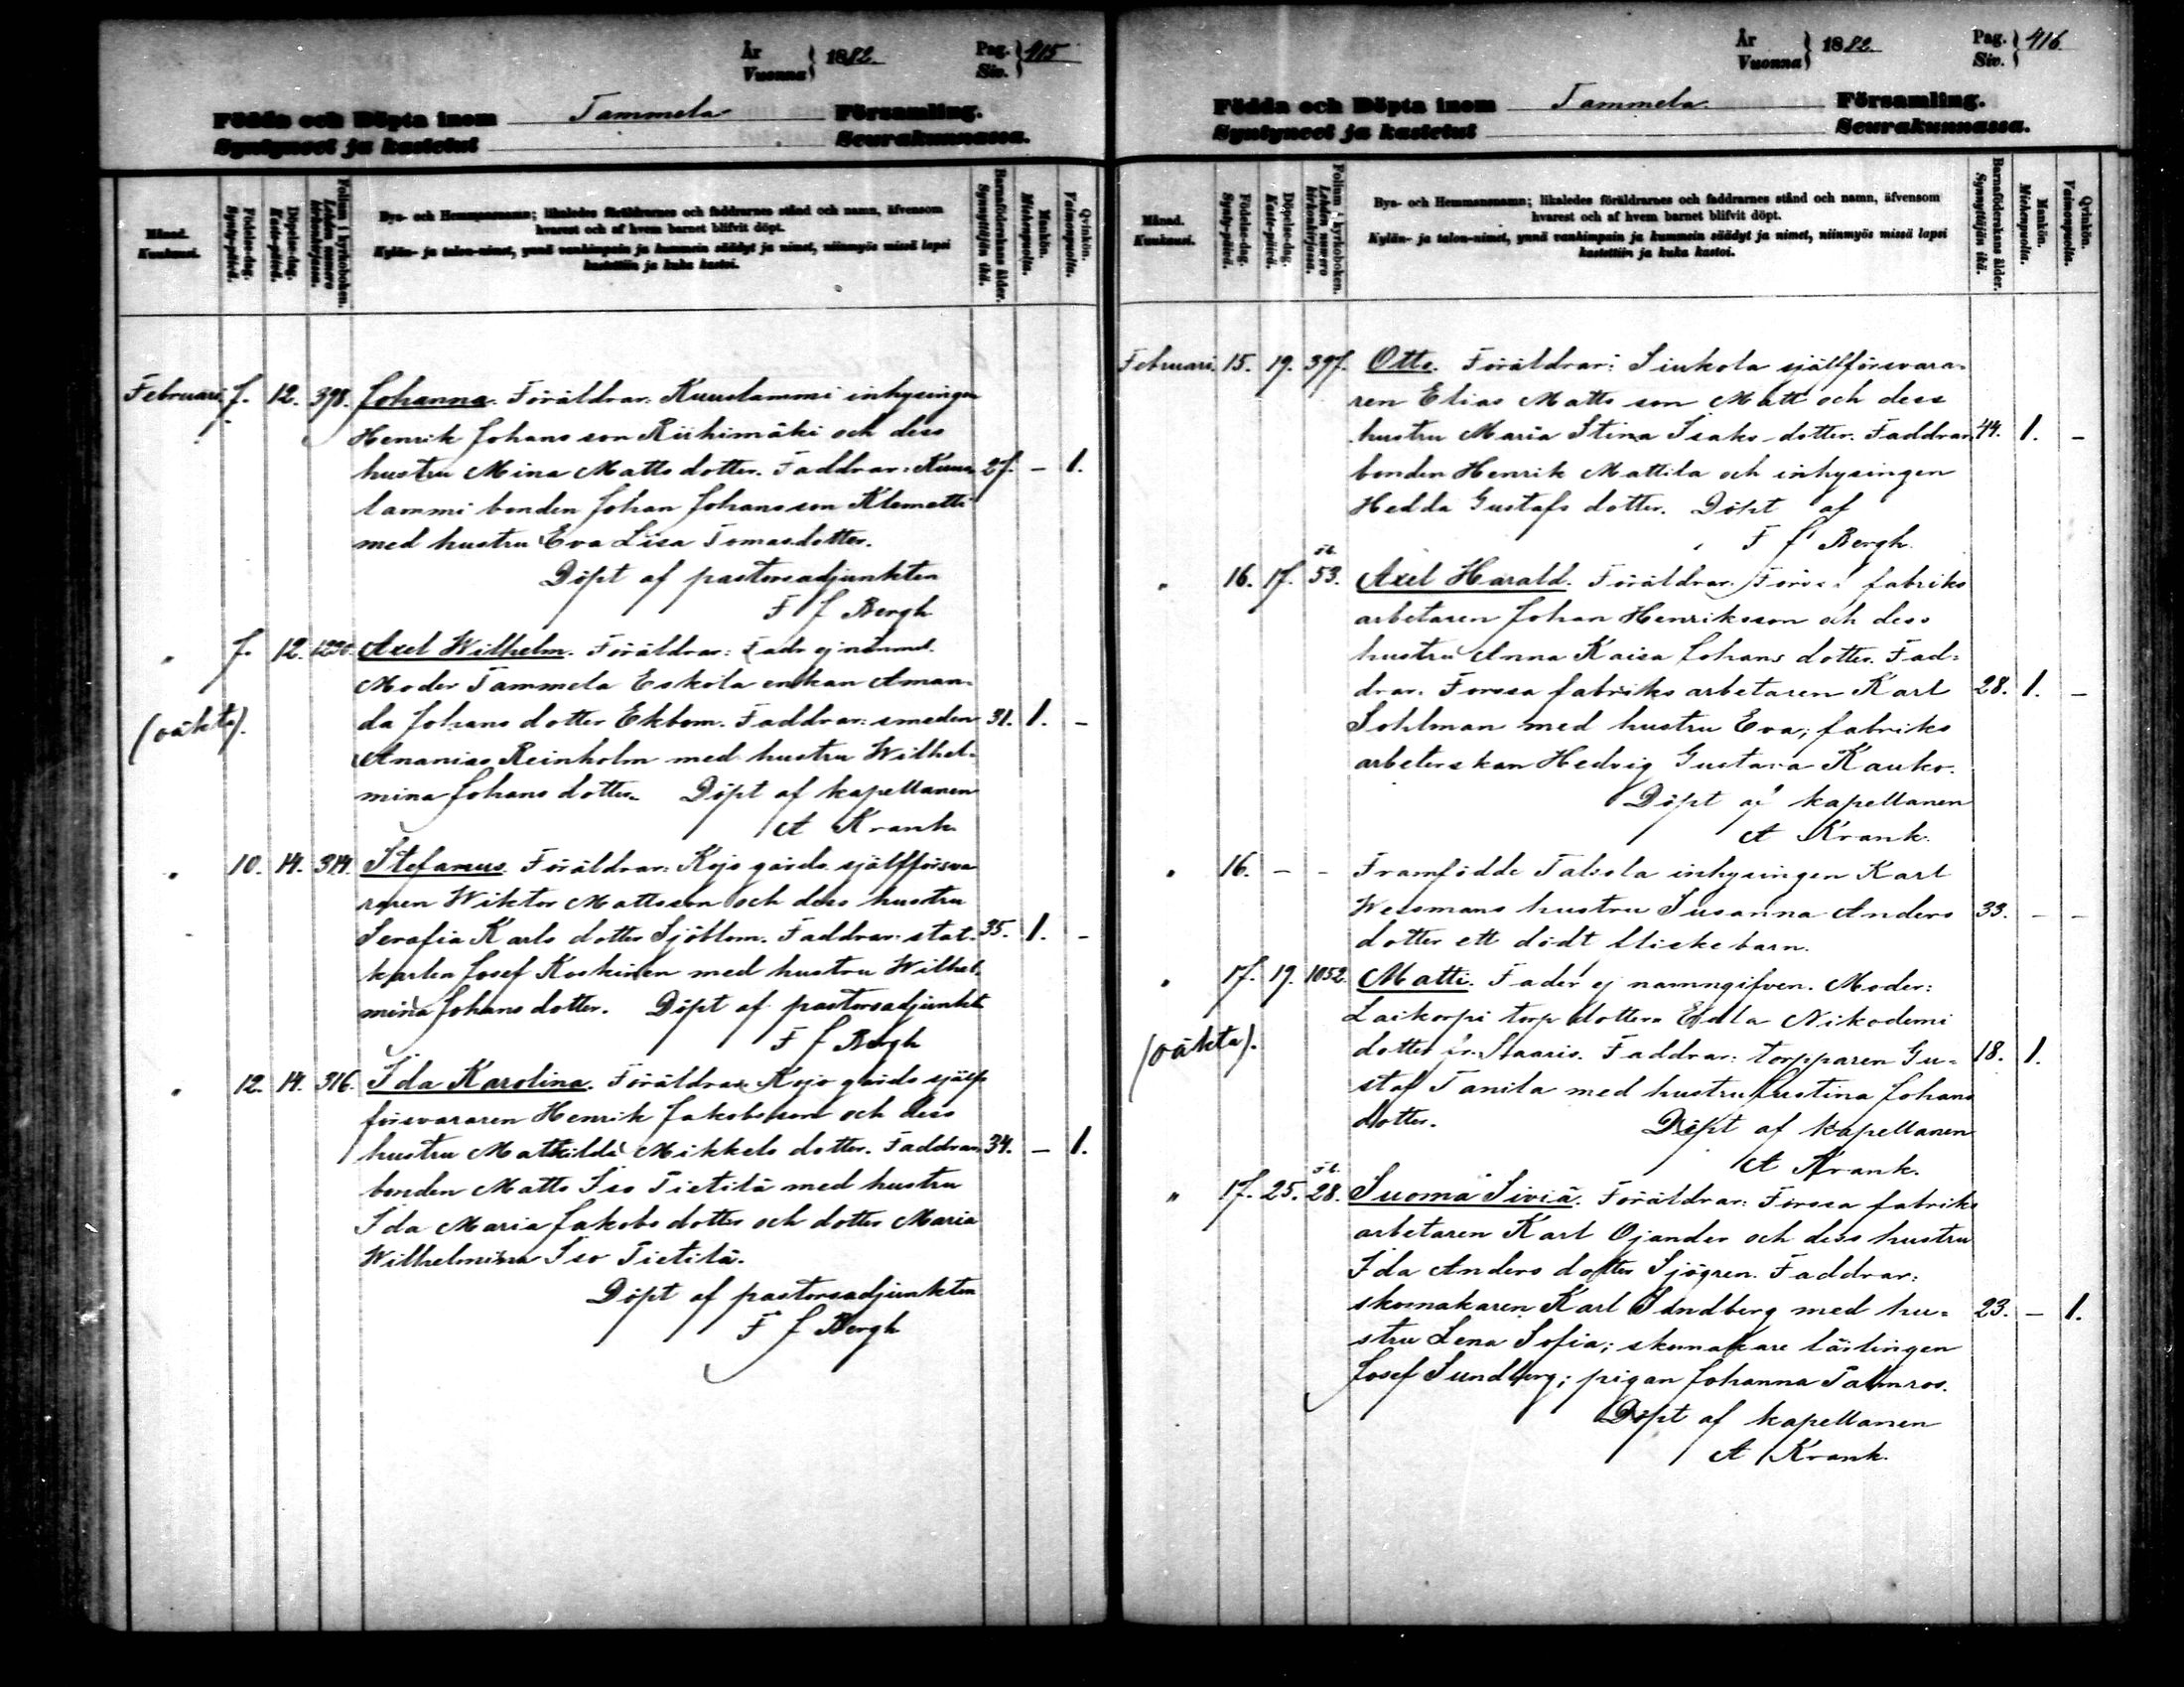 År
Vuonna } 1882.
Pag.
Siv. } 415
Födda och Döpta inom Tammela Församling.
Syntyneet ja kastetut Seurakunnassa.
Månad.
Kuukausi.
Födelse-dag.
Synty-päivä.
Döpelse-dag.
Kaste-päivä.
Folium i kyrkoboken.
Lehden numero
kirkonkirjassa.
Bya- och Hemmansnamn; likaledes föräldrarnes och faddrarnes stånd och namn, äfvensom
hvarest och af hvem barnet blifvit döpt.
Kylän- ja talon-nimet, ynnä vanhimpain ja kummein säädyt ja nimet, niinmyös missä lapsi
kastettiin ja kuka kastoi.
Barnaföderskans ålder.
Synnyttäjän ikä.
Mankön.
Miehenpuolia.
Qvinkön.
Vaimonpuolia.
Februari 7. 12. 398. Johanna. Föräldrar: Kuuslammi inhysingen
Henrik Johans son Riihimäki och dess
hustru Mina Matts dotter. Faddrar: Kuus- 27. – 1.
lammi bonden Johan Johansson Klemetti
med hustru Eva Lisa Tomasdotter.
Döpt af pastorsadjunkten
F J Bergh
" 7. 12. 1230. Axel Wilhelm. Föräldrar: Fadr ej nämnd.
Moder Tammela Eskola enkan Aman-
(oäkta). da Johans dotter Ekbom. Faddrar: smeden 31. 1. –
Ananias Reinholm med hustru Wilhel-
mina Johans dotter. Döpt af kapellanen
A Krank
" 10. 14. 314. Stefanus. Föräldrar: Kojo gårds sjelfförsva
raren Wiktor Mattsson och dess hustru
Serafia Karls dotter Sjöblom. Faddrar: stat- 35. 1. –
karlen Josef Koskinen med hustru Wilhel-
mina Johans dotter. Döpt af pastorsadjunkt
F J Bergh
" 12. 14. 316. Ida Karolina. Föräldrar Kojo gårds sjelf
försvararen Henrik Jakobsson och dess
hustru Mathilda Mikkels dotter. Faddrar 34. – 1.
bonden Matts Iso Tietilä med hustru
Ida Maria Jakobs dotter och dotter Maria
Wilhelmina Iso Tietilä.
Döpt af pastorsadjunkten
F J Bergh
År
Vuonna } 1882.
Pag.
Siv. } 416
Födda och Döpta inom Tammela Församling.
Syntyneet ja kastetut Seurakunnassa.
Månad.
Kuukausi.
Födelse-dag.
Synty-päivä.
Döpelse-dag.
Kaste-päivä.
Folium i kyrkoboken.
Lehden numero
kirkonkirjassa.
Bya- och Hemmansnamn; likaledes föräldrarnes och faddrarnes stånd och namn, äfvensom
hvarest och af hvem barnet blifvit döpt.
Kylän- ja talon-nimet, ynnä vanhimpain ja kummein säädyt ja nimet, niinmyös missä lapsi
kastettiin ja kuka kastoi.
Barnaföderskans ålder.
Synnyttäjän ikä.
Mankön.
Miehenpuolia.
Qvinkön.
Vaimonpuolia.
Februari. 15. 19. 397. Otto. Föräldrar: Siukola sjelfförsvara-
ren Elias Matts son Matt och dess
hustru Maria Stina Isaks-dotter. Faddrar 44. 1. –
bonden Henrik Mattila och inhysingen
Hedda Gustafs dotter. Döpt af
F J Bergh.
" 16. 17. 53. Axel Harald. Föräldrar: Forssa fabriks
arbetaren Johan Henriksson och dess
hustru Anna Kaisa Johans dotter. Fad-
drar. Forssa fabriks arbetaren Karl 28. 1. –
Sohlman med hustru Eva; fabriks
arbeterskan Hedvig Gustava Kauko.
Döpt af kapellanen
A Krank.
" 16. – – Framfödde Talsola inhysingen Karl
Wessmans hustru Susanna Anders 33. – –
dotter ett dödt flickebarn.
" 17. 19. 1052. Matti. Fader ej namngifven. Moder:
Laikorpi torp dottern Edla Nikodemi
(oäkta). dotter fr. Staaris. Faddrar: torpparen Gu- 18. 1.
staf Tanila med hustru Justina Johans
dotter. Döpt af kapellanen
A Krank.
" 17. 25. 28. Suoma Siviä. Föräldrar: Forssa fabriks
arbetaren Karl Ojander och dess hustru
Ida Anders dotter Sjögren. Faddrar:
skomakaren Karl Sundberg med hu- 23. – 1.
stru Lena Sofia; skomakare lärlingen
Josef Sundberg; pigan Johanna Palmros.
Döpt af kapellanen
A Krank.